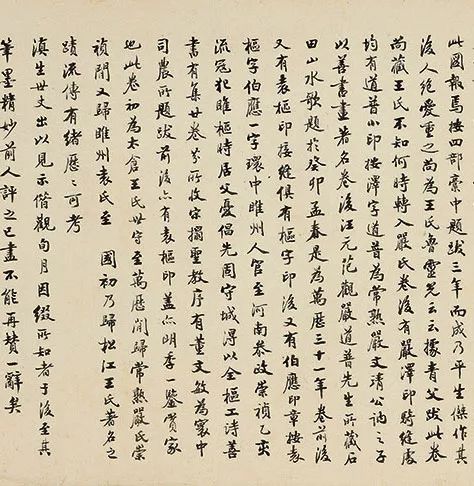 此圖報馬樓四部豪中題跋三年而成乃平生傑作其
後人絕愛重之尚為王氏魯靈光云云據青父跋此卷
尚藏王氏不知何時轉入嚴氏卷後有嚴澤印騎縫處
均有道普小印按澤字道普為常熟嚴文靖公訥之子
以善書畫著名卷後汪元范觀嚴道普先生所藏石
田山水歌題於癸卯孟春是為萬歷三十一年卷前後
又有袁樞印接縫俱有樞字印後又有伯應印章按袁
樞字伯應一字環中睢州人官至河南參政崇禎乙亥
流寇犯睢樞時居父憂倡先固守城得以全樞工詩善
書有集世卷分所收宋搨聖教序有董文敏為寰中
司農所題跋前後亦有袁樞印蓋亦明季一鑒賞家
也此卷初為太倉王氏世守至萬歷間歸常熟嚴氏崇
禎間又歸睢州袁氏至 國初乃歸松江王氏著名之
蹟流傳有緒歷歷可考
滇生世丈出以見示借觀旬月因綴所知者于後至其
筆墨精妙前人評之已盡不能再贊一辭矣